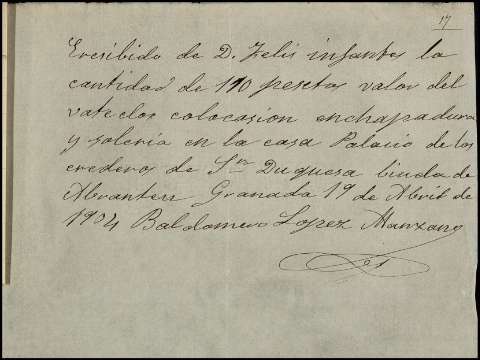 17
Eresibido de D. Felis infantes la
cantidad de 110 pesetas valor del
vateclos colocasion enchapadura
y soleria en la casa Palacio de los
erederos de Sra Duquesa biuda de
Abrantes Granada 19 de Abril de
1904 Baldomero Lopez Manzano